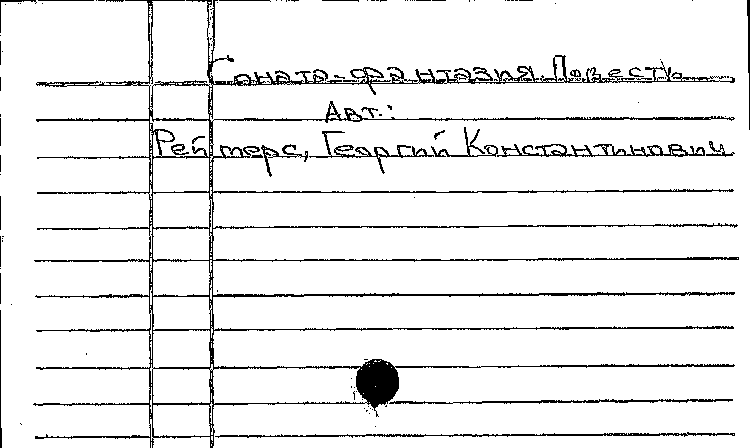 Соната-фантазия. Повесть.
Авт.:
Рейтерс, Георгий Константинович